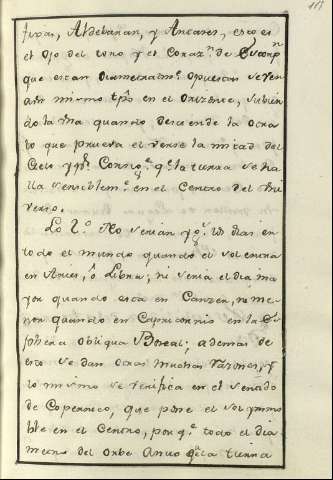 fixas, Aldebaran, y Antares, esto es
el Ojo del toro y el Corazn. de Escorpn
que estan Diametralmte. opuestas se ven
aun mismo tpo en el Orizonte, subien
do la Vna quando desciende la Otra
lo que prueva el verse la mitad del
Cielo y pr. Consigte. qe. la tierra se ha
lla sensiblemte. en el Centro del Vni
verso.
Lo 2o. No serian ygs. los dias en
todo el mundo quando el sol entra
en Aries, ò Libra; ni seria el dia ma
yor quando está en Canzer, no me-
nor quando en Capricornio en la Es-
phera Obliqua Boreal; ademas de
esto se dan Otras muchas razones, y
lo mismo se verifica en el sentido
de Copernico, que pone el sol ynmo
ble en el Centro, por qe. todo el dia
metro del Orbe Anuo qe. la tierra